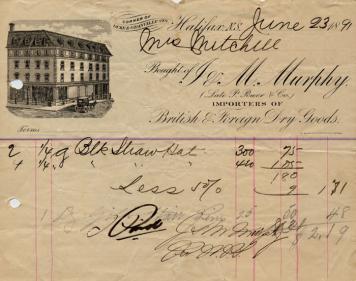 CORNER OF
DUKE & GRANVILLE STS.
Halifax, N.S. June 23 1891
Mrs Mitchell
Bought of J. & M. Murphy.
(Late P. Power & Co.)
IMPORTERS OF
British & Foreign Dry Goods.
Terms
2 1/4 g Blk Straw Hat 300 75
+ 1/4 g " " " 420 105
180
Less 5% 9 171
1 25 50 48
Paid J & M Murphy $2.19